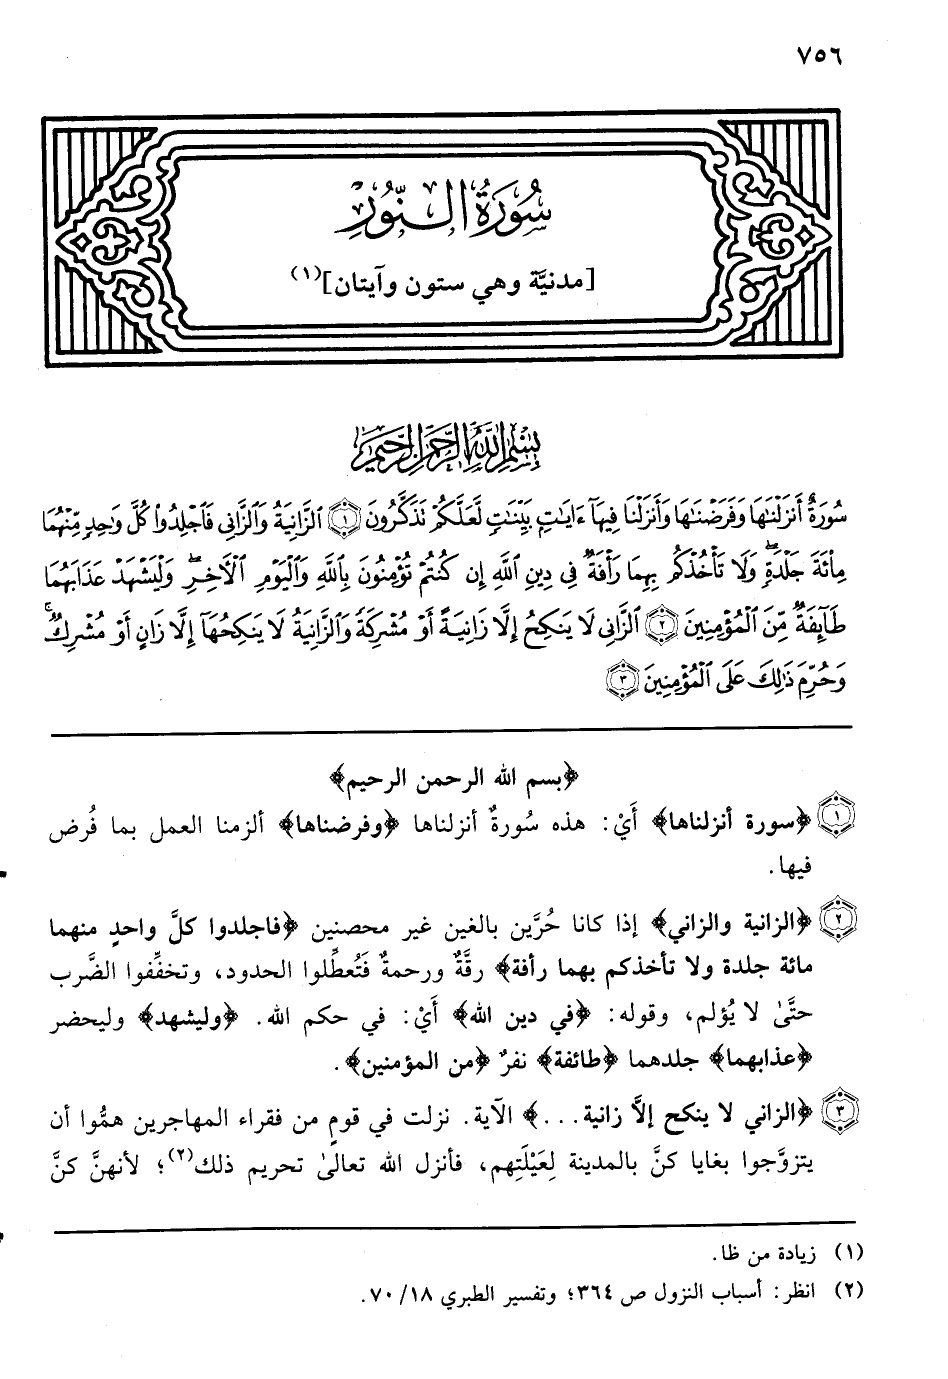 ٧٥٦
سُورَةُ النُّورِ
[مدنيَّة وهي ستون وآيتان](١)
بِسْمِ اللَّهِ الرَّحْمَٰنِ الرَّحِيمِ
سُورَةٌ أَنزَلْنَٰهَا وَفَرَضْنَٰهَا وَأَنزَلْنَا فِيهَآ ءَايَٰتٍۭ بَيِّنَٰتٍ لَّعَلَّكُمْ تَذَكَّرُونَ ١ ٱلزَّانِيَةُ وَٱلزَّانِى فَٱجْلِدُوا۟ كُلَّ وَٰحِدٍ مِّنْهُمَا
مِا۟ئَةَ جَلْدَةٍ ۖ وَلَا تَأْخُذْكُم بِهِمَا رَأْفَةٌ فِى دِينِ ٱللَّهِ إِن كُنتُمْ تُؤْمِنُونَ بِٱللَّهِ وَٱلْيَوْمِ ٱلْءَاخِرِ ۖ وَلْيَشْهَدْ عَذَابَهُمَا
طَآئِفَةٌ مِّنَ ٱلْمُؤْمِنِينَ ٢ ٱلزَّانِى لَا يَنكِحُ إِلَّا زَانِيَةً أَوْ مُشْرِكَةً وَٱلزَّانِيَةُ لَا يَنكِحُهَآ إِلَّا زَانٍ أَوْ مُشْرِكٌ ۚ
وَحُرِّمَ ذَٰلِكَ عَلَى ٱلْمُؤْمِنِينَ ٣
﴿بسم الله الرحمن الرحيم﴾
١ ﴿سورة أنزلناها﴾ أَيْ: هذه سُورةٌ أنزلناها ﴿وفرضناها﴾ ألزمنا العمل بما فُرض
فيها.
٢ ﴿الزانية والزاني﴾ إذا كانا حُرَّين بالغين غير محصنين ﴿فاجلدوا كلَّ واحدٍ منهما
مائة جلدة ولا تأخذكم بهما رأفة﴾ رقَّةٌ ورحمةٌ فَتُعطِّلوا الحدود، وتخفِّفوا الضَّرب
حتَّىٰ لا يُؤلم، وقوله: ﴿في دين الله﴾ أَيْ: في حكم الله. ﴿وليشهد﴾ وليحضر
﴿عذابهما﴾ جلدهما ﴿طائفة﴾ نفرٌ ﴿من المؤمنين﴾.
٣ ﴿الزاني لا ينكح إلَّا زانية...﴾ الآية. نزلت في قومٍ من فقراء المهاجرين همُّوا أن
يتزوَّجوا بغايا كنَّ بالمدينة لِعَيْلَتِهم، فأنزل الله تعالىٰ تحريم ذلك(٢)؛ لأنهنَّ كنَّ
(١) زيادة من ظا.
(٢) انظر: أسباب النزول ص ٣٦٤؛ وتفسير الطبري ١٨/ ٧٠.